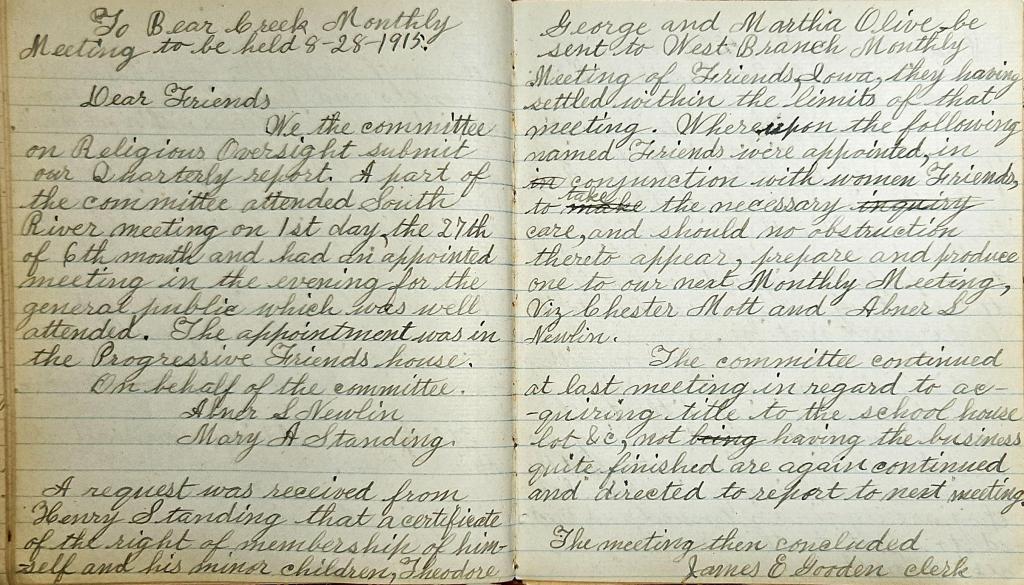 To Bear Creek Monthly
Meeting to be held 8-28-1915.
Dear Friends
We the committee
on Religious Oversight submit
our Quarterly report. A part of
the committee attended South
River meeting on 1st day, the 27th
of 6th month and had an appointed
meeting in the evening for the
general public which was well
attended. The appointment was in
the Progressive Friends house.
On behalf of the committee.
Abner S Newlin
Mary A Standing
A request was received from
Henry Standing that a certificate
of the right of membership of him-
self and his minor children, Theodore
George and Martha Olive be
sent to West Branch Monthly
Meeting of Friends, Iowa, they having
settled within the limits of that
meeting. Whereupon the following
named Friends were appointed, in
in conjunction with women Friends,
to make take the necessary inquiry
care, and should no obstruction
thereto appear, prepare and produce
one to our next Monthly Meeting,
Viz Chester Mott and Abner S
Newlin.
The committee continued
at last meeting in regard to ac-
-quiring title to the school house
lot &c, not being having the business
quite finished are again continued
and directed to report to next meeting.
The meeting then concluded
James E Gooden clerk